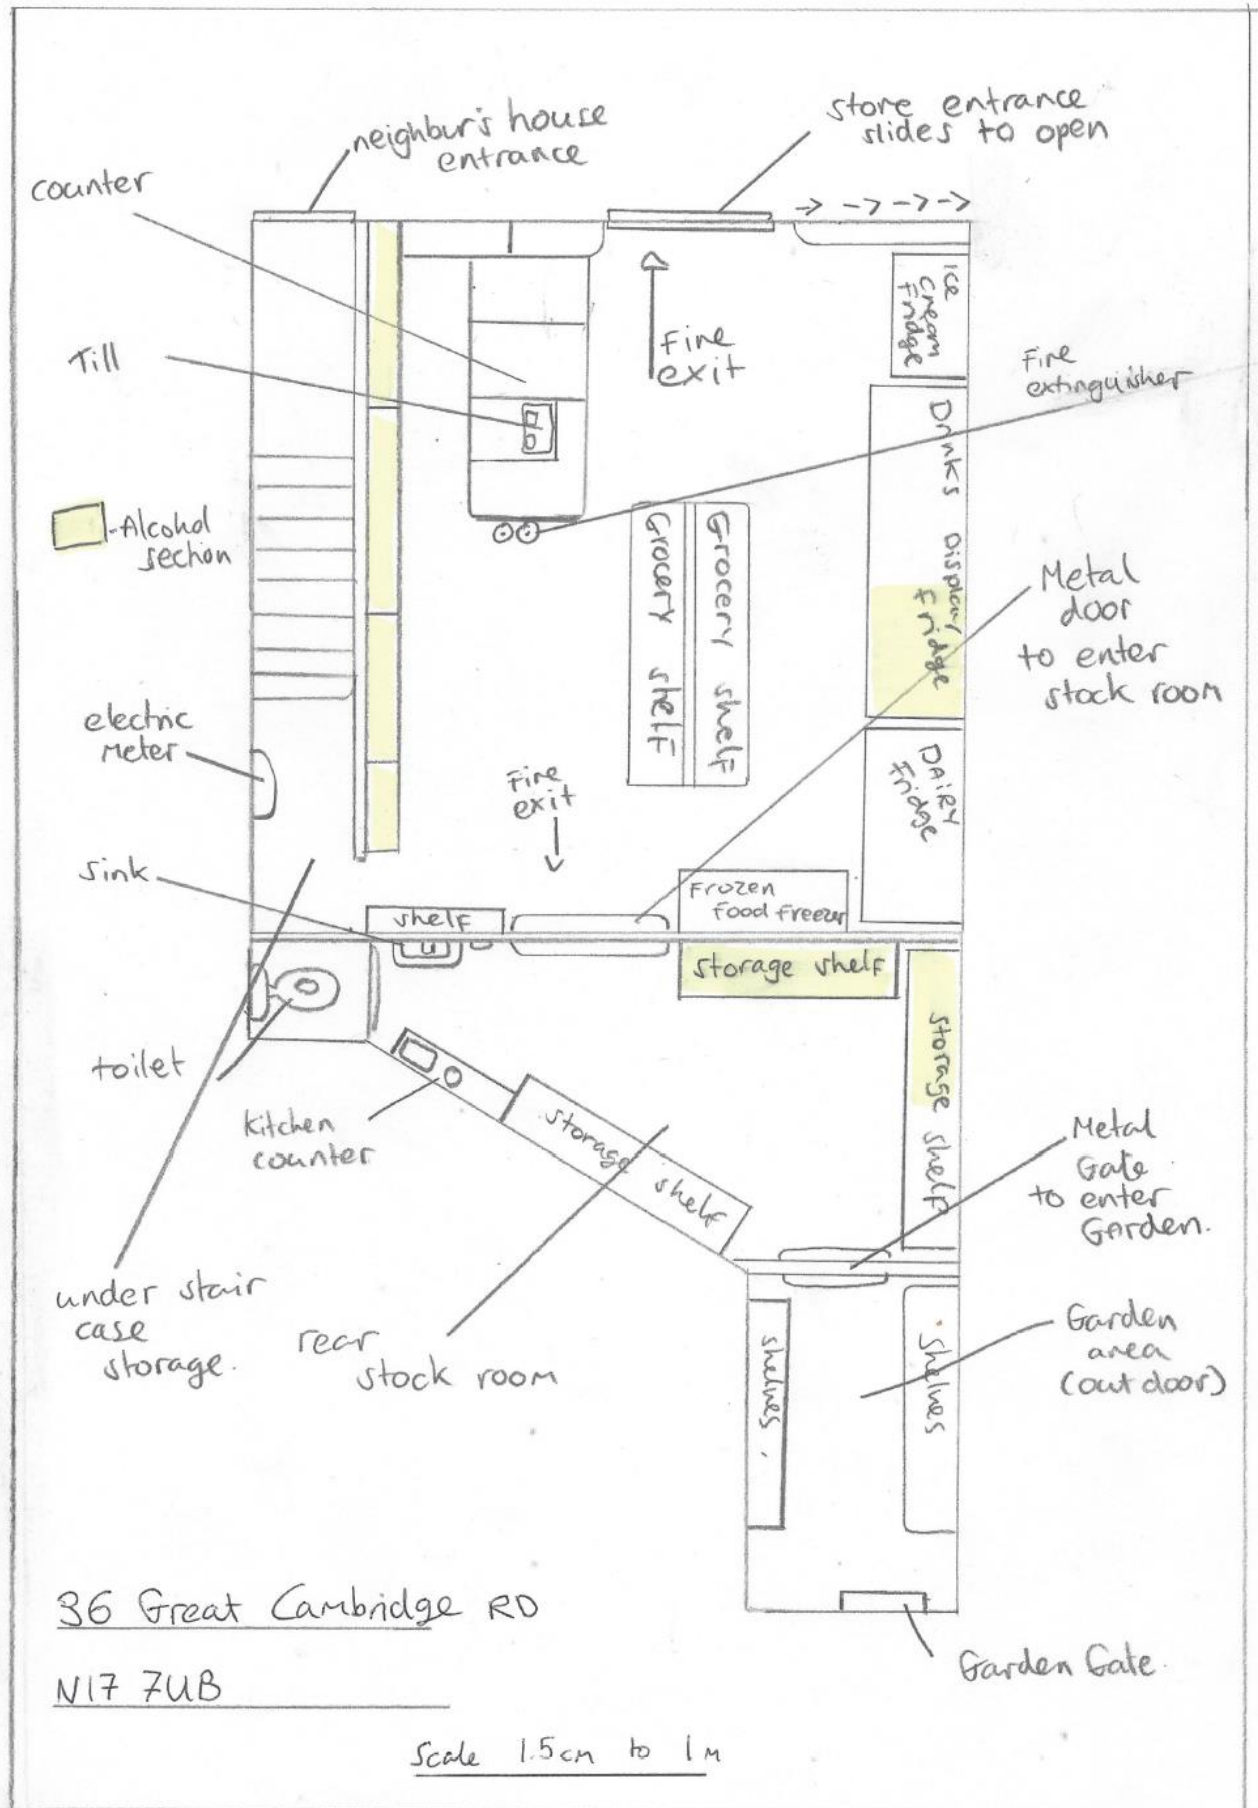 neighbur's house
entrance
store entrance
slides to open
counter
→ -> -> ->
Ice
Cream
Fridge
Till
Fire
exit
Fire
extinguisher
Drinks Display
Fridge
-Alcohol
section
Grocery shelf
Grocery shelf
Metal
door
to enter
stock room
electric
meter
Fire
exit
DAIRY
Fridge
Sink
shelf
Frozen
Food Freezer
storage shelf
storage shelf
toilet
kitchen
counter
storage shelf
Metal
Gate
to enter
Garden.
under stair
case
storage.
rear
stock room
shelves.
shelves
Garden
area
(out door)
36 Great Cambridge RD
N17 7UB
Garden Gate.
Scale 1.5cm to 1M